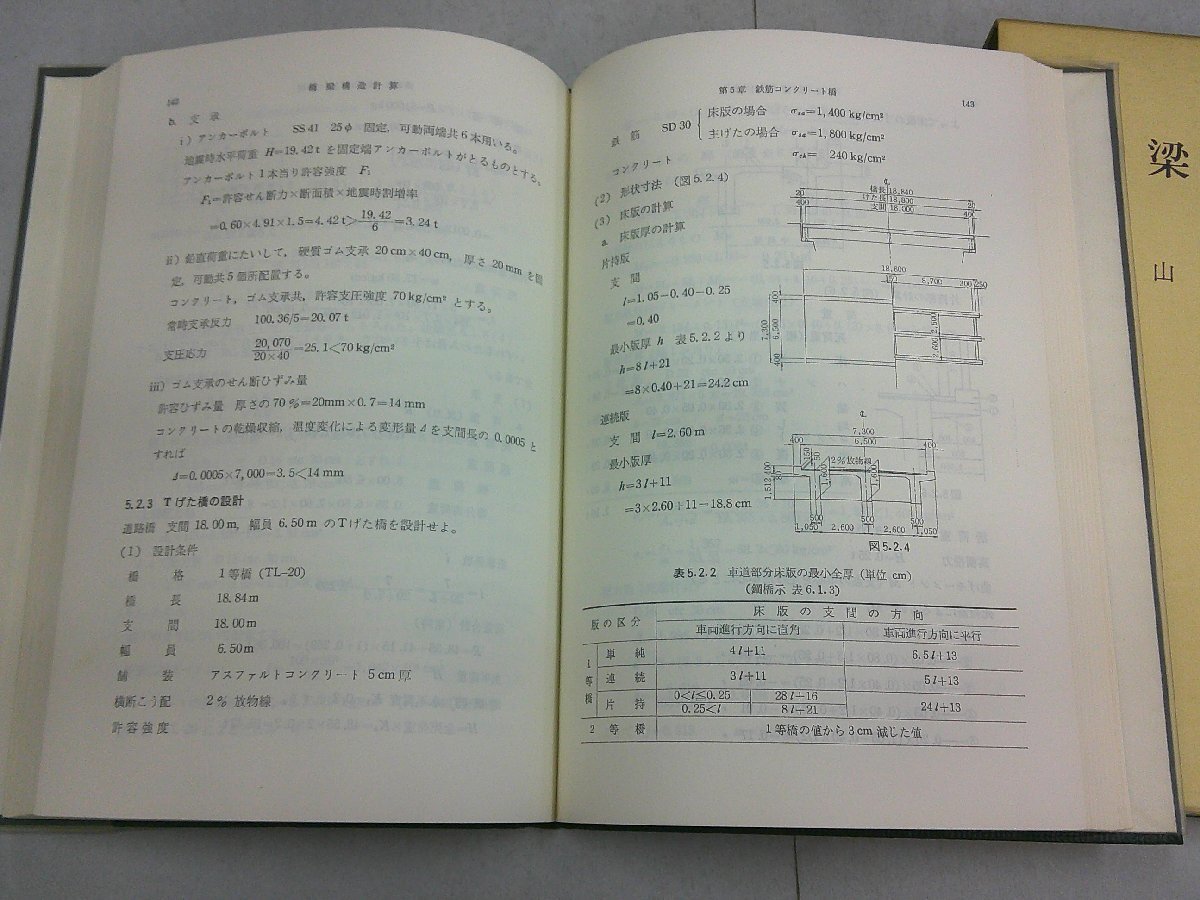 橋梁構造計算
b. 支承
i) アンカーボルト SS41 25φ 固定, 可動両端共6本用いる。
地震時水平荷重 H=19.42t を固定端アンカーボルトがとるものとする。
アンカーボルト1本当り許容強度 F₁
F₁=許容せん断力×断面積×地震時割増率
=0.60×4.91×1.5=4.42t>19.42/6=3.24t
ii) 鉛直荷重にたいして, 硬質ゴム支承 20cm×40cm, 厚さ20mmを固
定, 可動共5個所配置する。
コンクリート, ゴム支承共, 許容支圧強度 70kg/cm² とする。
常時支承反力 100.36/5=20.07t
支圧応力 20,070/20×40=25.1<70kg/cm²
iii) ゴム支承のせん断ひずみ量
許容ひずみ量 厚さの70%=20mm×0.7=14mm
コンクリートの乾燥収縮, 温度変化による変形量 Δ を支間長の 0.0005 と
すれば
Δ=0.0005×7,000=3.5<14mm
5.2.3 Tげた橋の設計
道路橋 支間 18.00m, 幅員 6.50m のTげた橋を設計せよ。
(1) 設計条件
橋格 1等橋 (TL-20)
橋長 18.84m
支間 18.00m
幅員 6.50m
舗装 アスファルトコンクリート 5cm厚
横断こう配 2% 放物線
許容強度
第5章 鉄筋コンクリート橋
143
鉄筋 SD30 { 床版の場合 σsa=1,400kg/cm²
主げたの場合 σsa=1,800kg/cm²
コンクリート σck= 240kg/cm²
(2) 形状寸法 (図5.2.4)
(3) 床版の計算
a. 床版厚の計算
片持版
支間
l=1.05-0.40-0.25
=0.40
最小版厚 h 表5.2.2より
h=8l+21
=8×0.40+21=24.2cm
連続版
支間 l=2.60m
最小版厚
h=3l+11
=3×2.60+11=18.8cm
℄
橋長 18,840
けた長 18,800
支間 18,000
20 20
400 40
18,800
8,700 200 250
400
7,300 6,500
2,600 2,600
400
℄
7,300
400 6,500 400
2%放物線
1,600 1,600
500 500 500
1,050 2,600 2,600 1,050
図5.2.4
表5.2.2 車道部分床版の最小全厚 (単位 cm)
(鋼橋示 表6.1.3)
版の区分 床版の支間の方向
車両進行方向に直角 車両進行方向に平行
1等橋 単純 4l+11 6.5l+13
連続 3l+11 5l+13
片持 0<l≤0.25 28l+16 24l+13
0.25<l 8l+21
2等橋 1等橋の値から3cm減じた値
梁
山